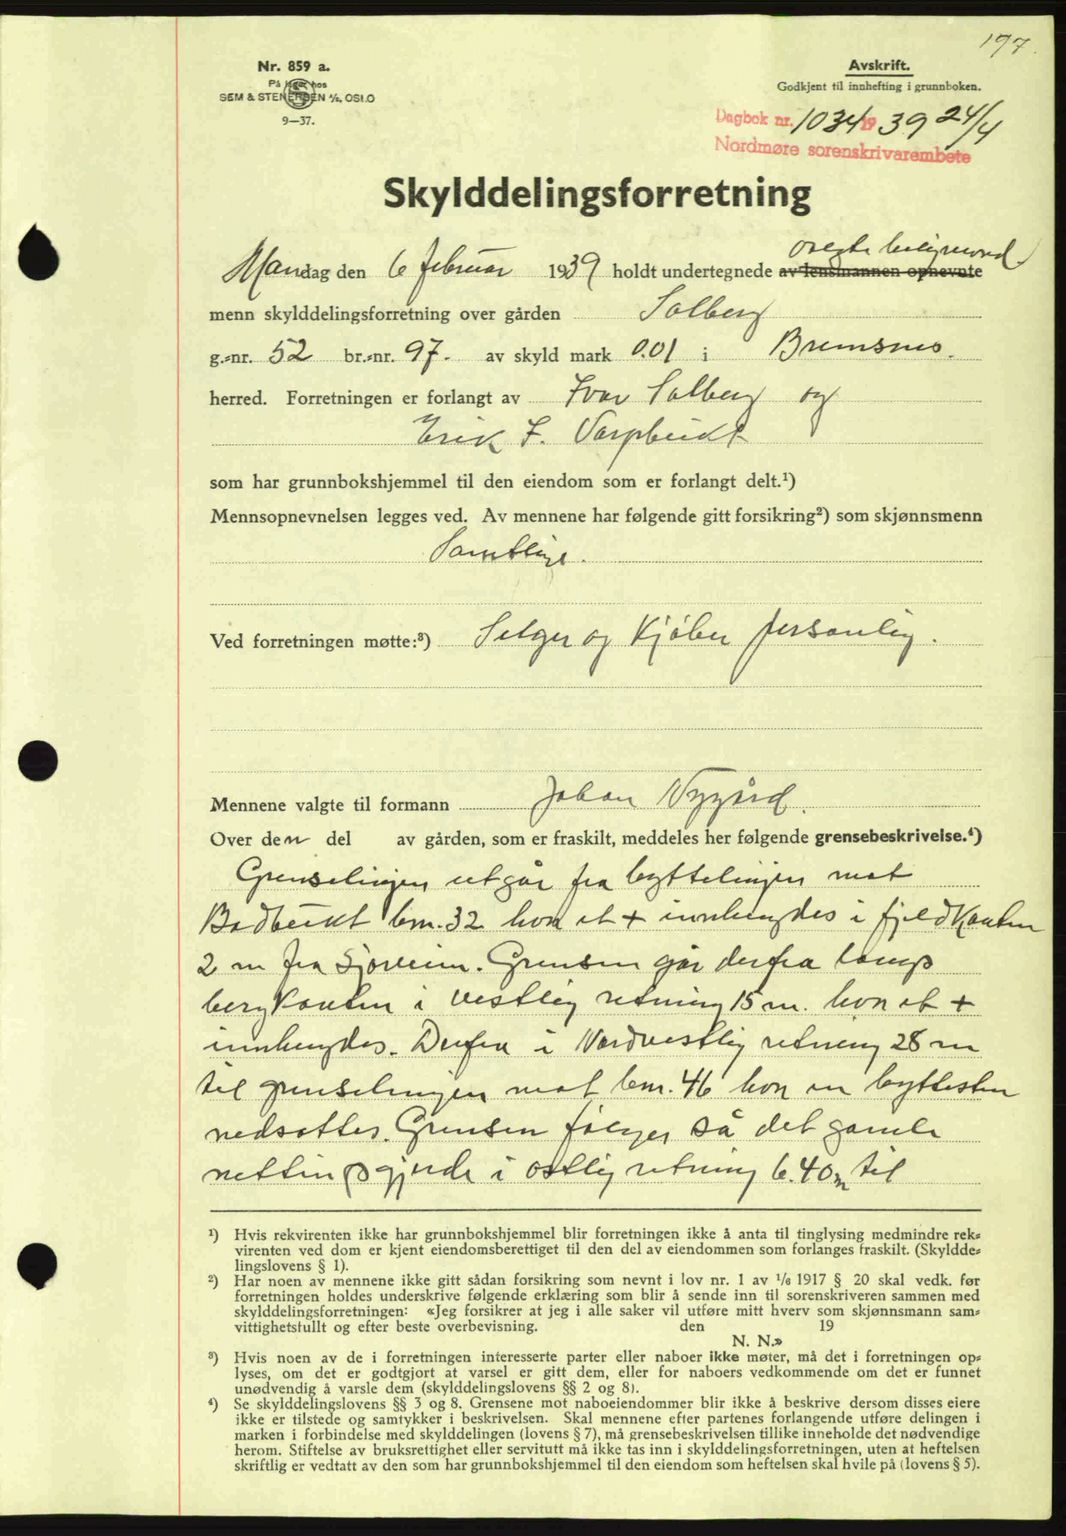 197.
Nr. 859 a.
På lager hos
SEM & STENERSEN A/S, OSLO
9—37.
Avskrift.
Godkjent til innhefting i grunnboken.
Dagbok nr. 1034 1939 24/4
Nordmøre sorenskrivarembete
Skylddelingsforretning
Mandag den 6 februar 1939 holdt undertegnede av lensmannen opnevnte
menn skylddelingsforretning over gården Solberg
g.-nr. 52 br.-nr. 97. av skyld mark 0.01 i Bremsnes.
herred. Forretningen er forlangt av Ivar Solberg og
Erik F. Varpbukt
som har grunnbokshjemmel til den eiendom som er forlangt delt.¹)
Mennsopnevnelsen legges ved. Av mennene har følgende gitt forsikring²) som skjønnsmenn
Samtlige.
Ved forretningen møtte:³) Selger og Kjøber personlig.
Mennene valgte til formann Johan Nygård.
Over den del av gården, som er fraskilt, meddeles her følgende grensebeskrivelse.⁴)
Grenselinjen utgår fra byttelinjen mot
Badbukt br.nr. 32 hvor et + innhugges i fjeldkanten
2 m fra Sjøveien. Grensen går derfra langs
bergkanten i vestlig retning 15 m. hvor et +
innhugges. Derfra i Nordvestlig retning 28 m
til grenselinjen mot br.nr. 46 hvor en byttesten
nedsattes. Grensen følger så det gamle
nettingsgjerde i østlig retning 6.40 m til
¹) Hvis rekvirenten ikke har grunnbokshjemmel blir forretningen ikke å anta til tinglysing medmindre rek-
virenten ved dom er kjent eiendomsberettiget til den del av eiendommen som forlanges fraskilt. (Skyldde-
lingslovens § 1).
²) Har noen av mennene ikke gitt sådan forsikring som nevnt i lov nr. 1 av 1/6 1917 § 20 skal vedk. før
forretningen holdes underskrive følgende erklæring som blir å sende inn til sorenskriveren sammen med
skylddelingsforretningen: «Jeg forsikrer at jeg i alle saker vil utføre mitt hverv som skjønnsmann sam-
vittighetsfullt og efter beste overbevisning. den 19
N. N.»
³) Hvis noen av de i forretningen interesserte parter eller naboer ikke møter, må det i forretningen op-
lyses, om det er godtgjort at varsel er gitt dem, eller for naboers vedkommende om det er funnet
unødvendig å varsle dem (skylddelingslovens §§ 2 og 8).
⁴) Se skylddelingslovens §§ 3 og 8. Grensene mot naboeiendommer blir ikke å beskrive dersom disses eiere
ikke er tilstede og samtykker i beskrivelsen. Skal mennene efter partenes forlangende utføre delingen i
marken i forbindelse med skylddelingen (lovens § 7), må grensebeskrivelsen tillike inneholde det nødvendige
herom. Stiftelse av bruksrettighet eller servitutt må ikke tas inn i skylddelingsforretningen, uten at heftelsen
skriftlig er vedtatt av den som har grunnbokshjemmel til den eiendom som heftelsen skal hvile på (lovens § 5).